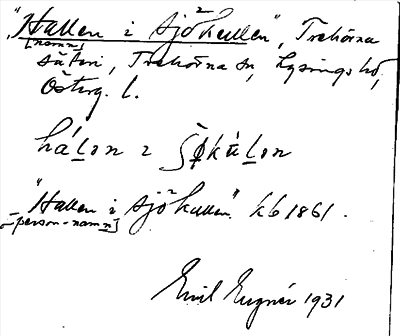 "Hallen i Sjökullen", Trehörna
[namn]
säteri, Trehörna sn, Lysings hd,
Österg. l.
"Hallen i Sjökullen" kb 1861.
[person-namn]
Emil Eugnér 1931